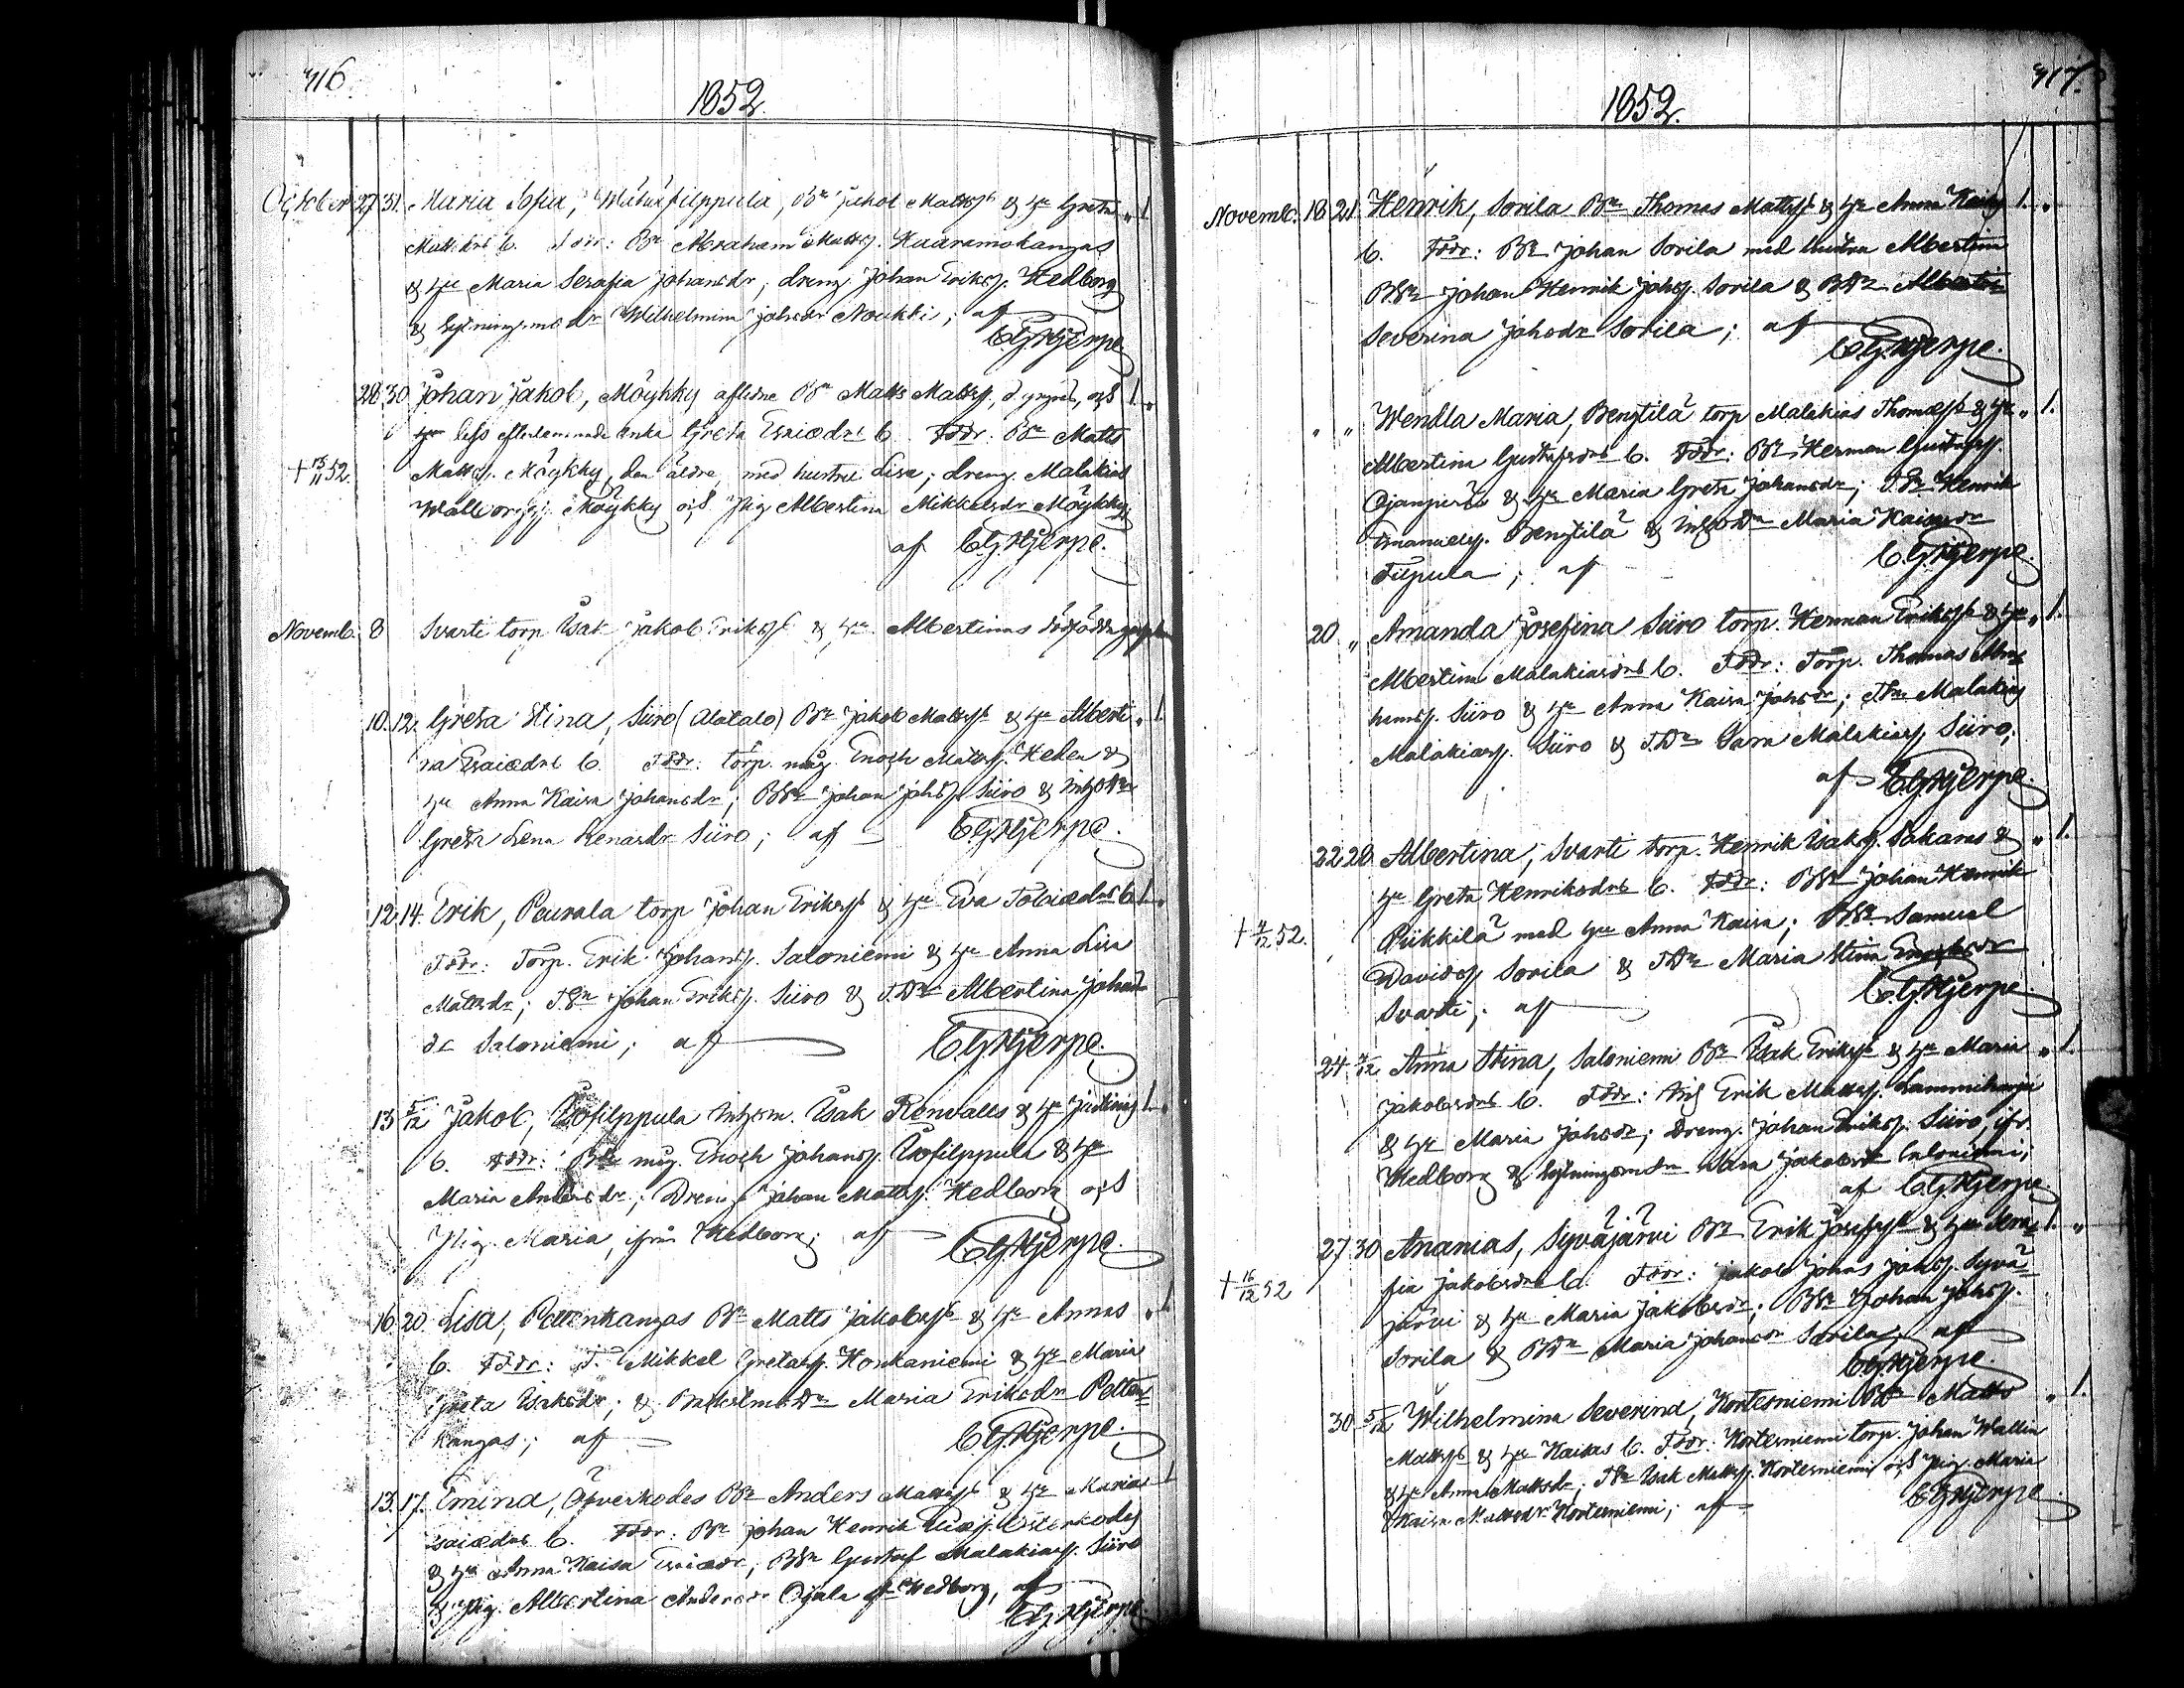 316
1852.
October 27 31. Maria Sofia, filppula, Bn Jakob Mattss & Hu Greta " 1.
Mattsdrs b. Fddr: Bn Abraham Mattss. Kaaramokangas
& Hu Maria Serafia Johansdr, dreng Johan Erikss. Hedborg
& Wilhelmina Johsdr Noukki; af
C.G. Hjerpe
28 30 Johan Jakob, Möykky aflidne Bn Matts Mattss, d. yngres, och 1. "
dess efterlemnade Enka Greta Esaiædrs b. Fddr: Bn Matts
† 15/11 52. Mattss. Möykky, den äldre, med hustru Lisa; dreng Malakias
Möykky och Pig. Albertina Mikkelsdr Möykky
af C.G. Hjerpe.
Novemb. 8 Svarti torp Isak Jakob Erikss & Hu Albertinas dödfödda
10. 12. Greta Stina, Siiro (Alatalo) Bn Jakob Mattss & Hu Alberti- " 1.
na Esaiædrs b. Fddr: torp. måg Enoch Mattss. Heden &
Hu Anna Kaisa Johansdr; BSn Johan Johss. Siiro &
Greta Lena Siiro; af C.G. Hjerpe.
12 14. Erik, Peurala torp Johan Erikss & Hu Eva Tobiædrs b. 1. "
Fddr: Torp. Erik Johanss. Saloniemi & Hu Anna Lisa
Mattsdr; TSn Johan Erikss. Siiro & TDr Albertina Johans-
dr Saloniemi; af C.G. Hjerpe.
13 5/12 Jakob, Isofilppula Inhysm. Isak Renvalls & Hu 1. "
b. Fddr: Bn måg Enoch Johanss. Isofilppula & Hu
Maria Andersdr; Dreng Johan Mattss. Hedborg och
Pig. Maria, ifrån Hedborg; af C.G. Hjerpe.
16. 20. Lisa, Peltenkangas Bn Matts Jakobss & Hu Annas " 1.
b. Fddr: T. Mikkel Gretass. Honkaniemi & Hu Maria
Greta Isaksdr; & Maria Eriksdr Pelten-
kangas; af C.G. Hjerpe.
13. 17. Emina, Öfverkodes Bn Anders Mattss & Hu Maria " 1
Esaiædrs b. Fddr: Bn Johan Henrik
& Hu Anna Kaisa Esaiædr; BSn Gustaf Malakiass. Siiro
& Pig. Albertina Andersdr Ojala Hedborg, af
C.G. Hjerpe
317.
1852.
Novemb. 18 21. Henrik, Sorila Bn Thomas Mattss & Hu Anna Kaisas 1. "
b. Fddr: Bn Johan Sorila med hustru Albertina
BSn Johan Henrik Johss. Sorila & BDr Albertin
Severina Johsdr Sorila; af C.G. Hjerpe.
" " Wendla Maria, Bengtilä torp Malakias Thomæss & Hu " 1.
Albertina Gustafsdrs b. Fddr: Bn Herman Gustafss.
Ojanperä & Hu Maria Greta Johansdr; Henrik
Emanuelss. Bengtilä & Maria Kaisasdr
Filpula; af C.G. Hjerpe.
20. " Amanda Josefina Siiro torp. Herman Erikss & Hu " 1.
Albertina Malakiasdrs b. Fddr: Torp. Thomas Abra-
hamss. Siiro & Hu Anna Kaisa Johsdr; TSn Malakias
Malakiass. Siiro & TDr Sara Malakiass Siiro;
af C.G. Hjerpe.
22 28. Albertina, Svarti torp. Henrik Isakss. Sakaras & " 1.
Hu Greta Henriksdrs b. Fddr: BSn Johan Henrik
† 4/12 52. Piikkilä med Hu Anna Kaisa; BSn Samuel
Davidss Sorila & TDr Maria Stina Enochsdr
Svarti; af C.G. Hjerpe
24 5/12 Anna Stina, Saloniemi Bn Isak Erikss & Hu Maria " 1.
Jakobsdrs b. Fddr: Erik Mattss. Lammiharju
& Hu Maria Johsdr; Dreng Johan Erikss. Siiro, ifr.
Hedborg & Jakobsdr Saloniemi;
af C.G. Hjerpe
27 30 Ananias, Syväjärvi Bn Erik Josefss & Hu Sera- 1. "
† 16/12 52 fia Jakobsdrs b. Fddr: Jakob Johas Johss. Syvä-
järvi & Hu Maria Jakobsdr; BSn Johan Johss.
Sorila & BDr Maria Johansdr Sorila; af
C.G. Hjerpe.
30 5/12 Wilhelmina Severina, Kortesniemi Bn Matts " 1.
Mattss & Hu Kaisas b. Fddr: Kortesniemi torp. Johan Wallin
& Hu Anna Mattsdr; TSn Isak Mattss. Kortesniemi och Pig. Maria
Kaisa Mattsdr Kortesniemi; af C.G. Hjerpe